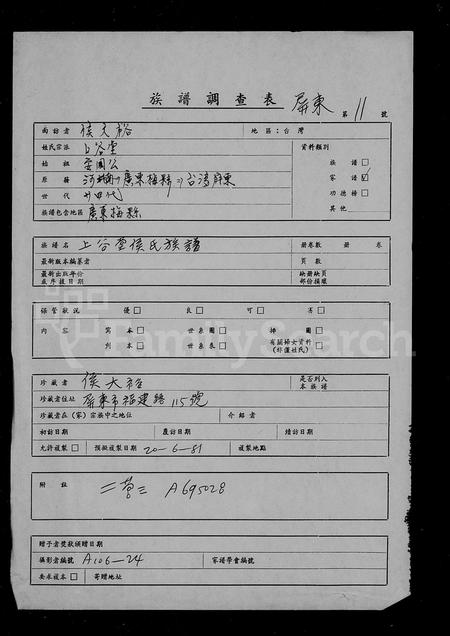 族譜調查表 屏東 第 11 號
面訪者 侯大裕 地區：台灣
姓氏宗派 上谷堂 資料類別
始祖 安國公 族譜 □
原籍 河南→廣東梅縣→台湾屏東 家譜 ☑
世代 廿四代 功德榜 □
族譜包含地區 廣東梅縣 其他
族譜名 上谷堂侯氏族譜 冊卷數 冊 卷
最新版本編纂者 頁數
最新出版年份 缺冊缺頁
或序後日期 部份損壞
保管狀況 優 □ 良 □ 可 □ 否 □
內容 寫本 □ 世系圖 □ 插圖 □
刊本 □ 世系表 □ 有關婦女資料 □
(非僅姓氏)
珍藏者 侯大裕 是否列入
本族譜
珍藏者住址 屏東市福建路115號
珍藏者在（家）宗族中之地位 介紹者
初訪日期 覆訪日期 續訪日期
允許複製 □ 預擬複製日期 20-6-81 複製地點
附註 A695028
贈予者獎狀頒贈日期
攝影者編號 A106-24 家譜學會編號
要求複本 □ 寄贈地址
FamilySearch